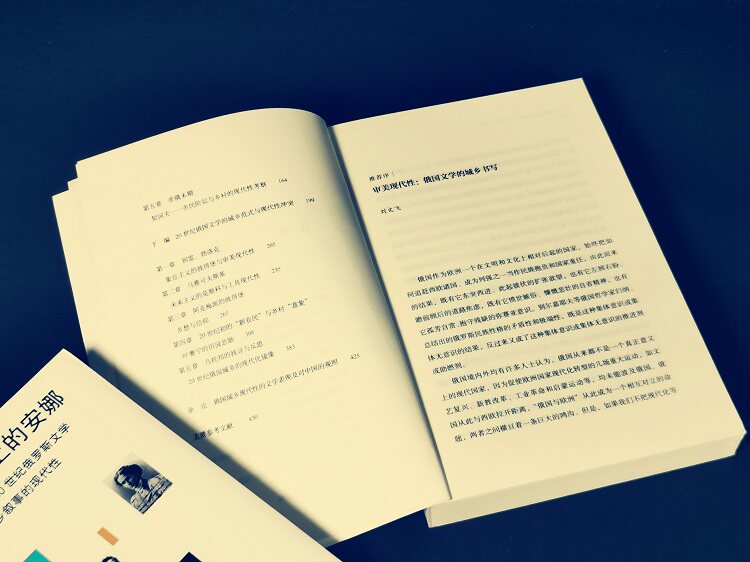 第五章 帝俄末期
契诃夫——市民阶层与乡村的现代性考察 164
下 编 20世纪俄国文学的城乡范式与现代性冲突 190
第一章 别雷、勃洛克
象征主义的彼得堡与审美现代性 205
第二章 马雅可夫斯基
未来主义的莫斯科与工具现代性 235
第三章 阿克梅派的彼得堡
乡愁与信仰 265
第四章 20世纪初的“新农民”与乡村“意象”
叶赛宁的田园悲歌 308
第五章 乌托邦的找寻与反思
20世纪俄国城乡的现代化镜像 383
余 论 俄国城乡现代性的文学表现及对中国的观照 425
主要参考文献 430
推荐序
审美现代性：俄国文学的城乡书写
刘文飞
俄国作为欧洲一个在文明和文化上相对后起的国家，始终把如
何追赶西欧诸国、成为列强之一当作民族抱负和国家重任，由此而来
的结果，既有它东突西进、此起彼伏的扩张欲望，也有它左顾右盼、
瞻前顾后的道路焦虑，既有它愤世嫉俗、慷慨悲壮的自省精神，也有
它孤芳自赏、抱守残缺的弥赛亚意识。别尔嘉耶夫等俄国哲学家归纳、
总结出的俄罗斯民族性格的矛盾性和极端性，既是这种集体意识或集
体无意识的结果，反过来又成了这种集体意识或集体无意识的推进剂
或助燃剂。
俄国境内外均有许多人士认为，俄国从来都不是一个真正意义
上的现代国家，因为促使欧洲国家现代化转型的几场重大运动，如文
艺复兴、新教改革、工业革命和启蒙运动等，均未能波及俄国，俄
国从此与西欧拉开距离，“俄国与欧洲”从此成为一个相互对立的命
题，两者之间横亘着一条巨大的鸿沟。但是，如果我们不把现代化等
上的安娜
世纪俄罗斯文学
叙事的现代性